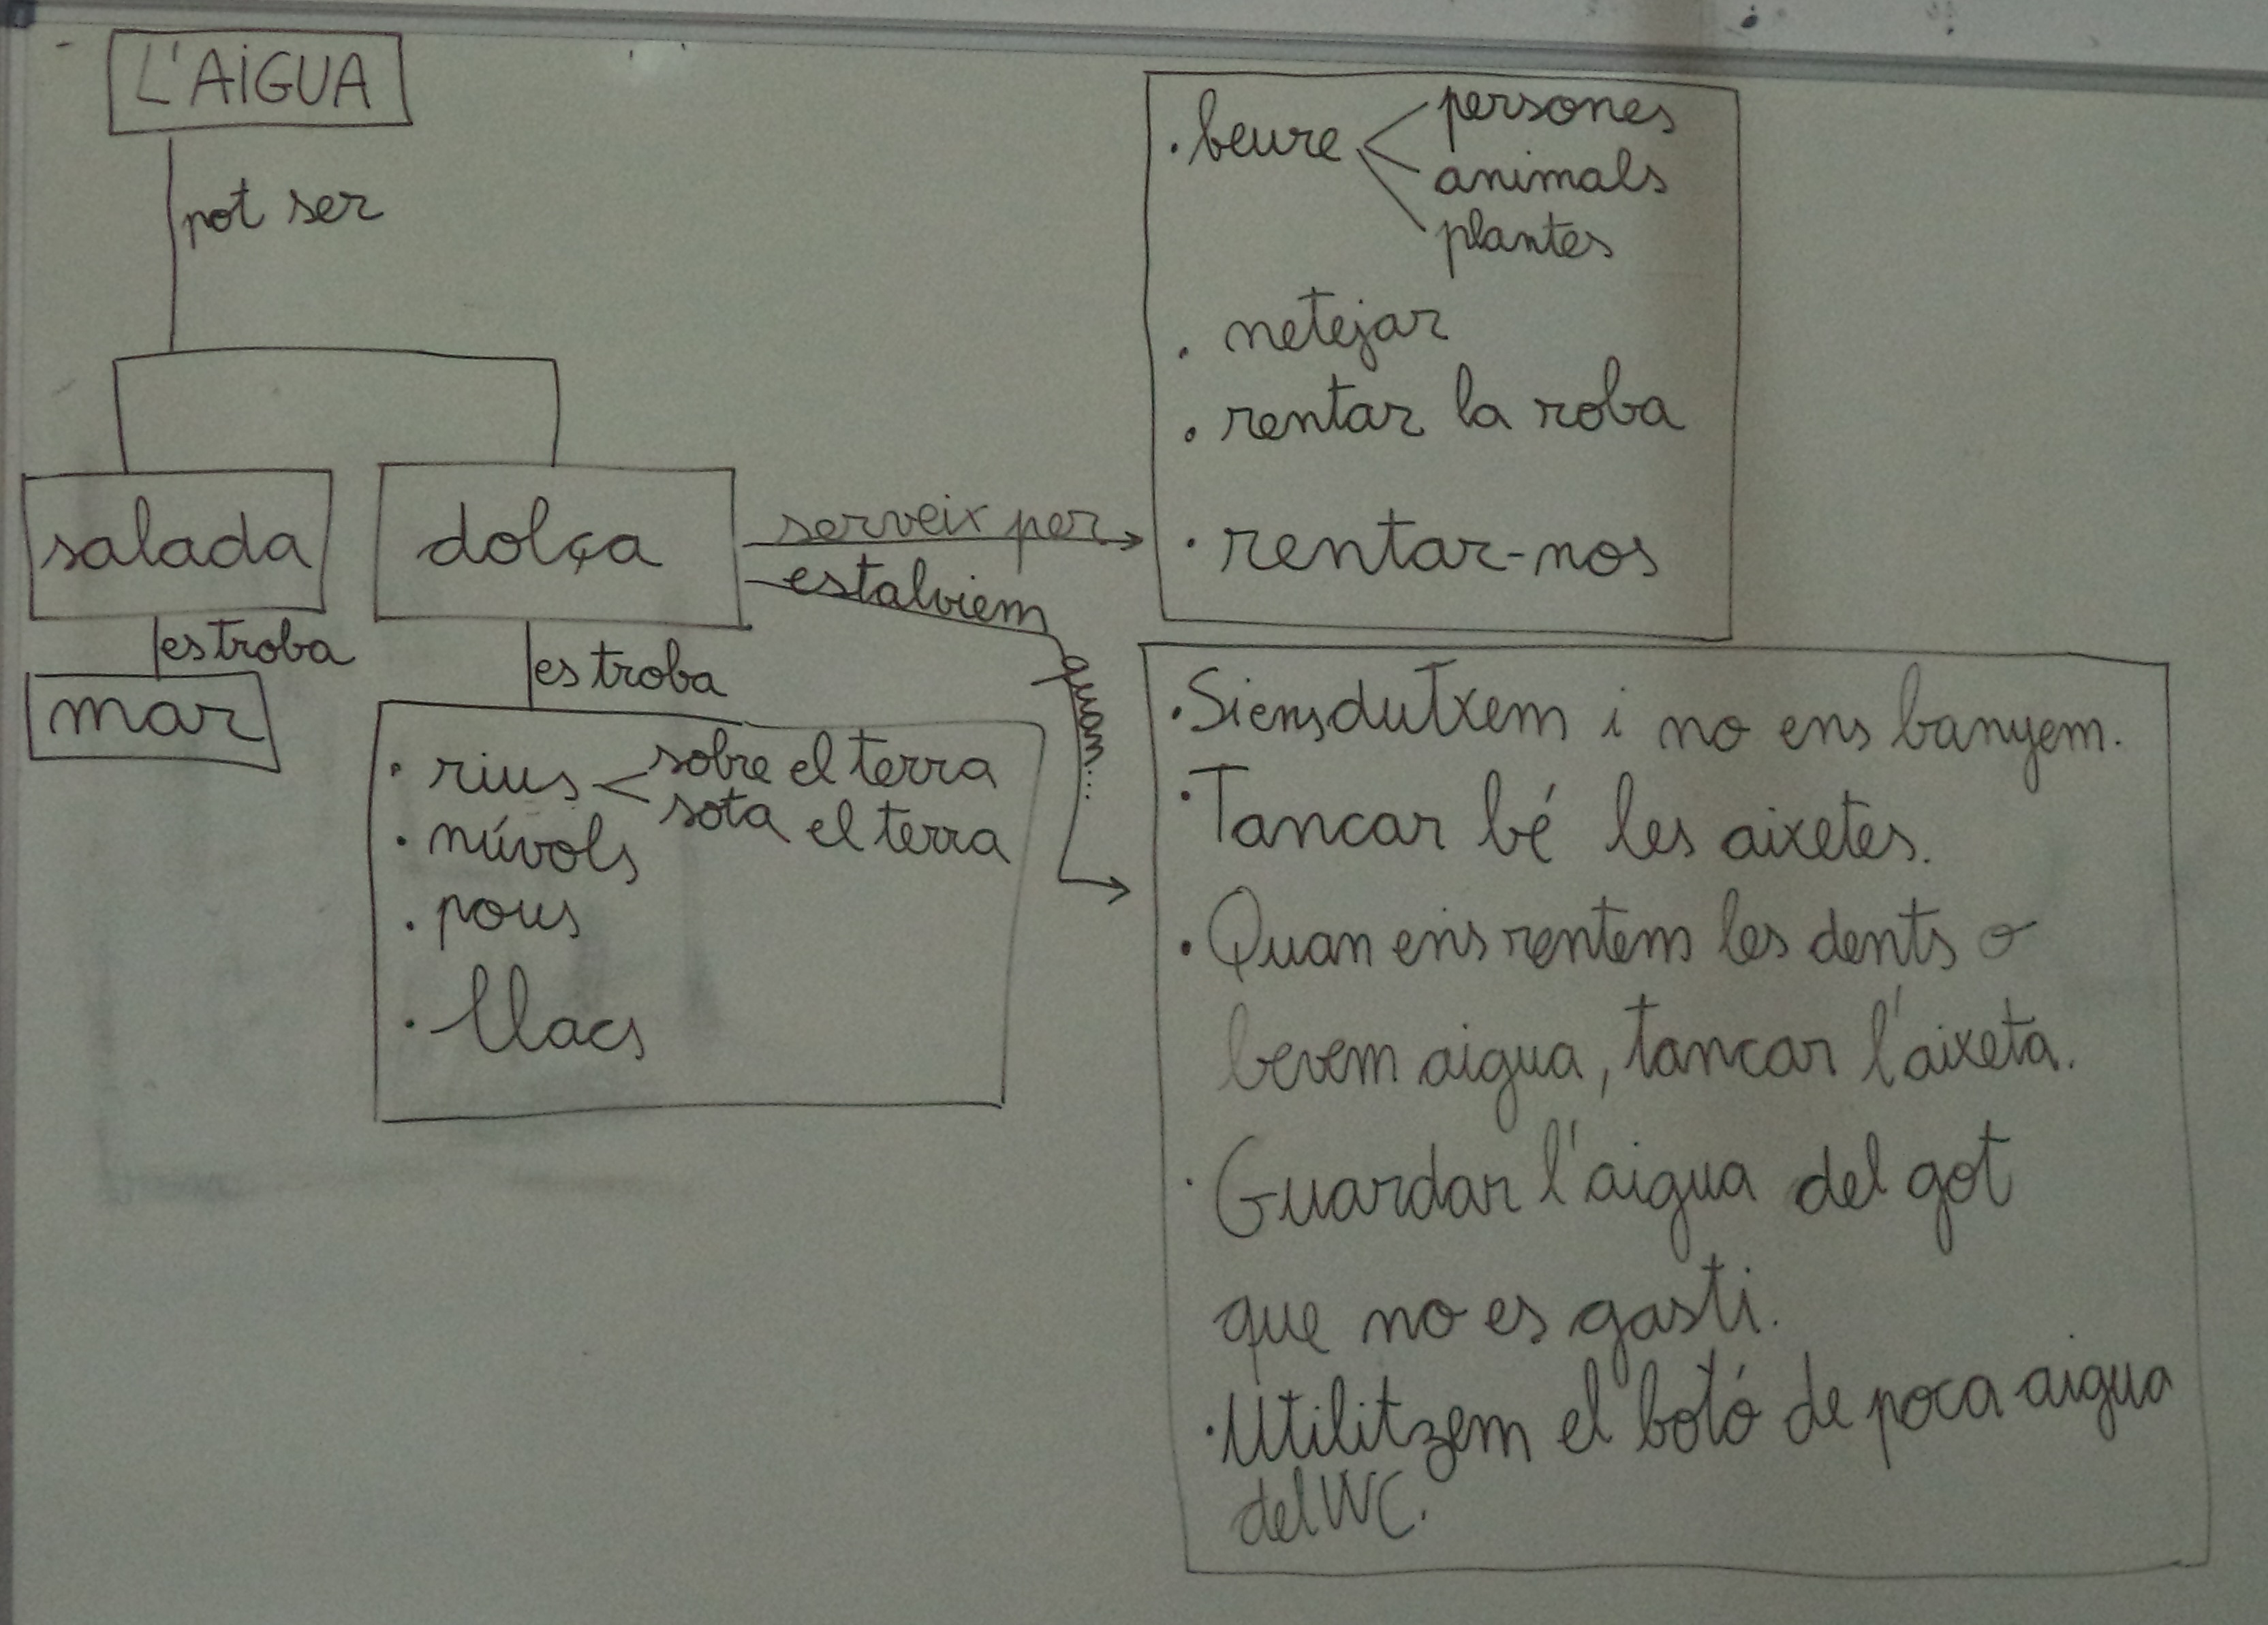 L'AIGUA
pot ser
salada
dolça
es troba
mar
es troba
· rius
sobre el terra
sota el terra
· núvols
· pous
· llacs
serveix per
· beure
persones
animals
plantes
· netejar
· rentar la roba
· rentar-nos
estalviem
quan...
· Si ens dutxem i no ens banyem.
· Tancar bé les aixetes.
· Quan ens rentem les dents o
bevem aigua, tancar l'aixeta.
· Guardar l'aigua del got
que no es gasti.
· Utilitzem el botó de poca aigua
del WC.